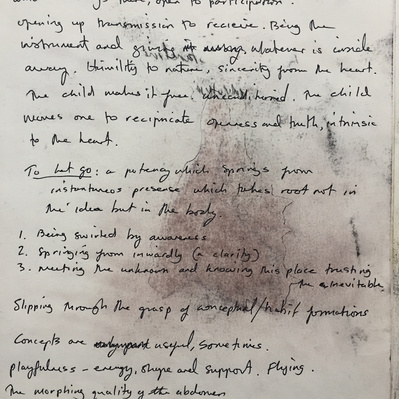 go there, open to participation.
opening up transmission to recieve. Being the
instrument and giving away whatever is inside
away. Humility to nature, sincerity from the heart.
The child makes it free, unconditioned. The child
moves one to reciprocate openess and truth, intrinsic
to the heart.
To let go: a potency which springs from
instantaneous presense which takes root not in
the idea but in the body.
1. Being switched by awareness
2. Springing from inwardly (a clarity)
3. Meeting the unknown and knowing this place trusting
the inevitable
Slipping through the grasp of conceptual/habit formations
Concepts are useful, sometimes.
Playfulness - energy, shape and support. Flying.
The morphing quality of the abdomen